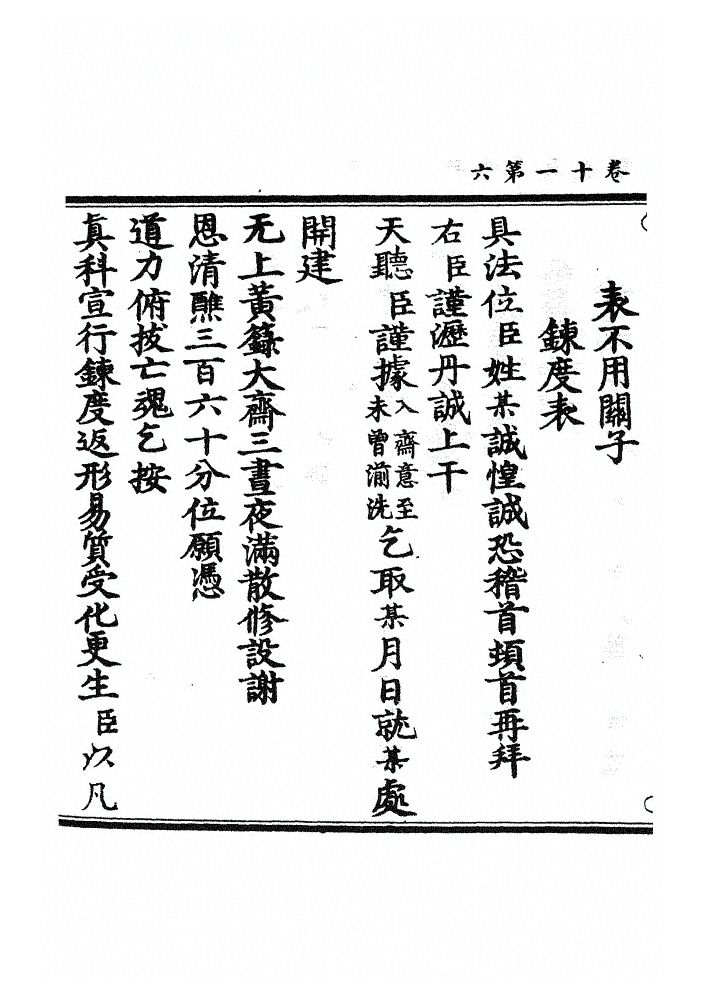 卷十一第六
表不用關子
鍊度表
具法位臣姓某誠惶誠恐稽首頓首再拜
右臣謹瀝丹誠上干
天聽臣謹據入齋意至未曾湔洗乞取某月日就某處
開建
无上黃籙大齋三晝夜滿散修設謝
恩清醮三百六十分位願憑
道力俯拔亡魂乞按
眞科宣行鍊度返形易質受化更生臣以凡